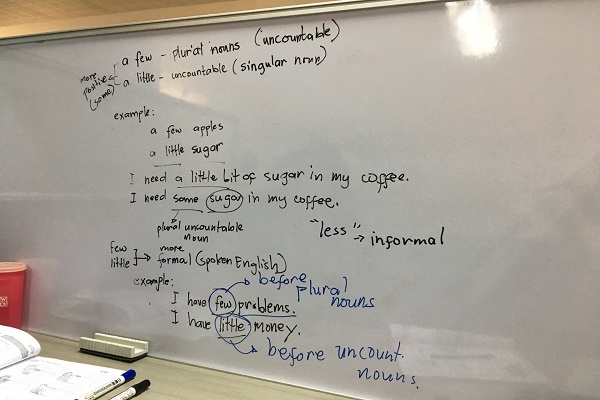 a few - plural nouns (uncountable)
more positive (some)
a little - uncountable (singular noun)
example:
a few apples
a little sugar
I need a little bit of sugar in my coffee.
I need some sugar in my coffee.
plural uncountable noun
"less" → informal
few
little
more formal (spoken English)
example:
I have few problems.
before plural nouns
I have little money.
before uncount. nouns.